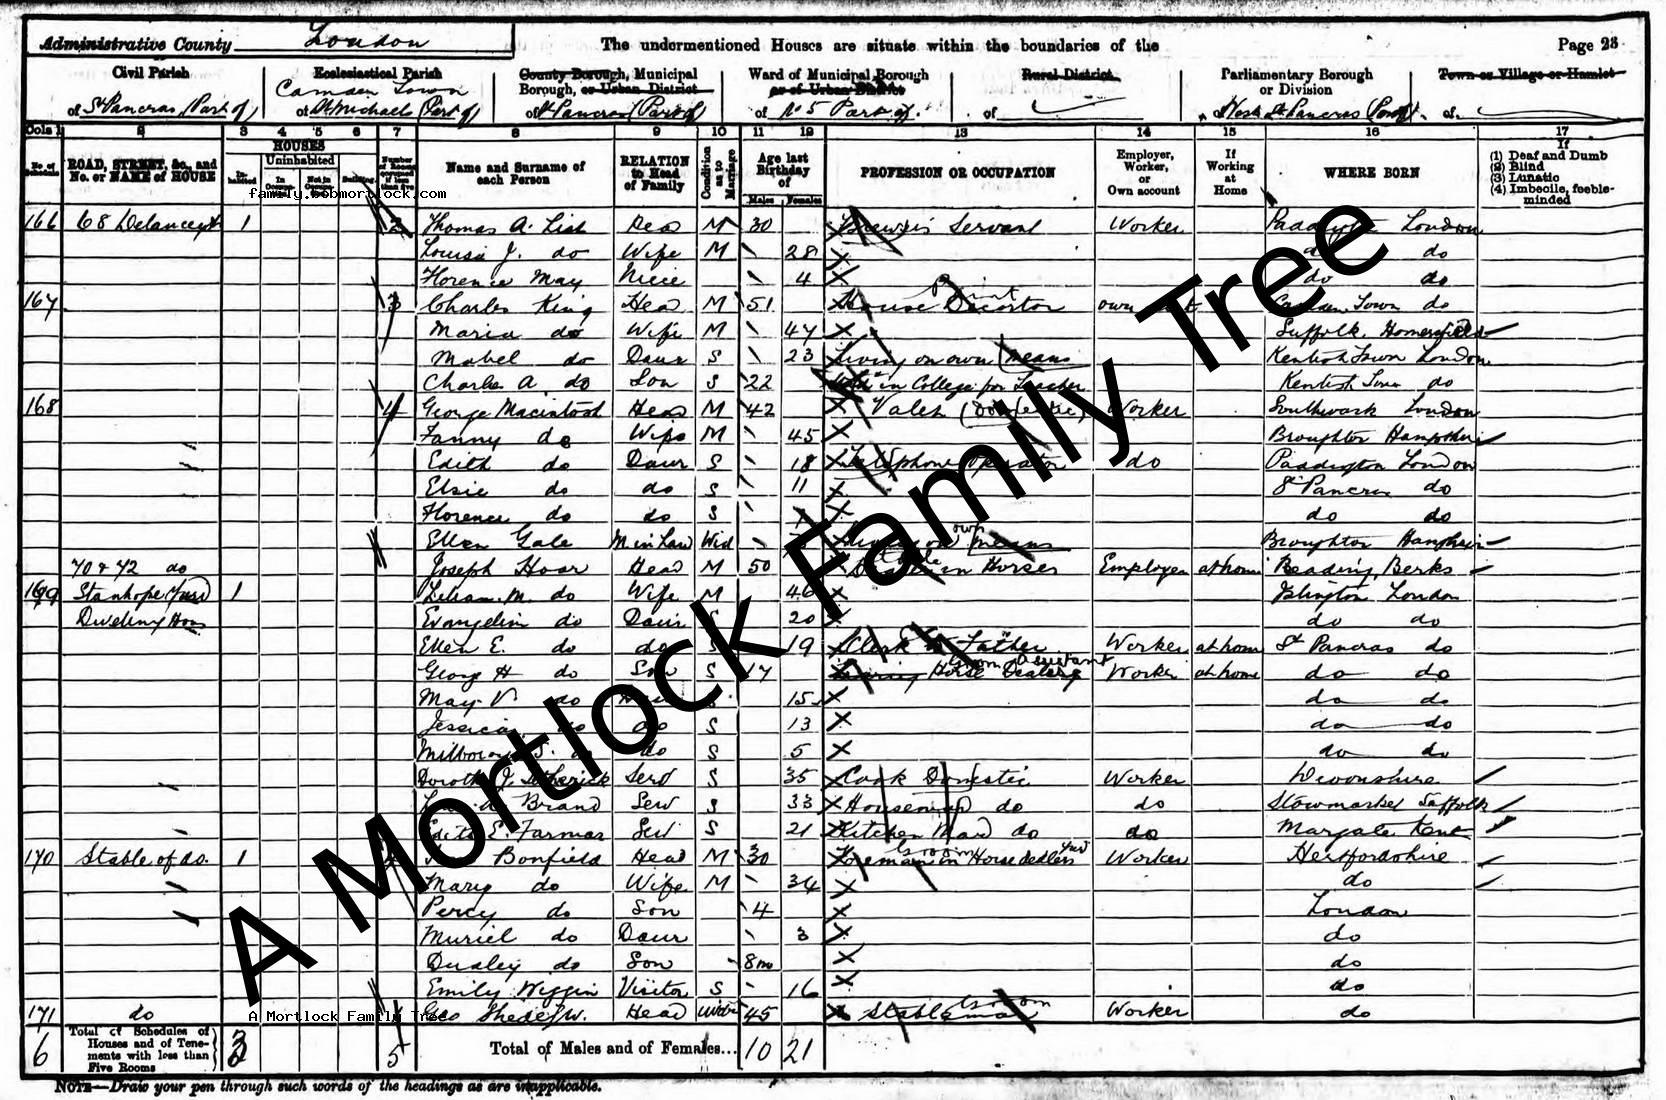 Administrative County London
The undermentioned Houses are situate within the boundaries of the
Page 23
Civil Parish
of St Pancras (Part of)
Ecclesiastical Parish
Camden Town
of St Michaels (Part of)
County Borough, Municipal
Borough, or Urban District
of St Pancras (Part of)
Ward of Municipal Borough
or of Urban District
of No 5 Part of.
Rural District
of
Parliamentary Borough
or Division
of West St Pancras (Part of).
Town or Village or Hamlet
of
Cols 1 2 3 4 5 6 7 8 9 10 11 12 13 14 15 16 17
No. of Schedule
ROAD, STREET, &c., and
No. or NAME of HOUSE
HOUSES
Inhabited
Uninhabited
In Occup.
Not in Occup.
Building
Number of Rooms occupied if less than five
Name and Surname of
each Person
RELATION
to Head
of Family
Condition
as to
Marriage
Age last
Birthday
of
Males Females
PROFESSION OR OCCUPATION
Employer,
Worker,
or
Own account
If
Working
at
Home
WHERE BORN
If
(1) Deaf and Dumb
(2) Blind
(3) Lunatic
(4) Imbecile, feeble-
minded
family.bobmortlock.com
166 68 Delancey St 1 2 Thomas A. Lish Head M 30 Servant Worker Paddington London
Louisa J. do Wife M 28 do do
Florence May Niece 4 do do
167 3 Charles King Head M 51 House Decorator own Camden Town do
Maria do Wife M 47 Suffolk Homersfield
Mabel do Daur S 23 Living on own means Kentish Town London
Charles A. do Son S 22 in College for Teacher Kentish Town do
168 4 George Macintosh Head M 42 Valet (Domestic) Worker Southwark London
Fanny do Wife M 45 Broughton Hampshire
Edith do Daur S 18 Telephone Operator do Paddington London
Elsie do do S 11 St Pancras do
Florence do do S do do
Ellen Gale M in Law Wid Living on own means Broughton Hampshire
70 & 72 do Joseph Hoar Head M 50 Dealer in Horses Employer at home Reading, Berks
169 Stanhope Yard 1 Lilian. M. do Wife M 46 Islington London
Dwelling House Evangelin do Daur 20 do do
Ellen E. do do 19 Clerk to Father Worker at home St Pancras do
George H do Son S 17 Groom Assistant Horse Dealers Worker at home do do
May V do 15 do do
Jessica do do S 13 do do
do S 5 do do
Dorothy J. Serv S 35 Cook Domestic Worker Devonshire
Brand Serv S 33 Housemaid do do Stowmarket Suffolk
Edith E. Farmar Serv S 21 Kitchen Maid do do Margate Kent
170 Stable of do. 1 Bonfield Head M 30 Foreman Groom in Horsedealers Yard Worker Hertfordshire
Mary do Wife M 34 do
Percy do Son 4 London
Muriel do Daur 3 do
Dudley do Son 8m do
Emily Wiggin Visitor S 16 do
171 do Geo Head Widr 45 Stableman Groom Worker do
A Mortlock Family Tree
6 Total of Schedules of
Houses and of Tene-
ments with less than
Five Rooms
3 5 Total of Males and of Females... 10 21
NOTE—Draw your pen through such words of the headings as are inapplicable.
A Mortlock Family Tree